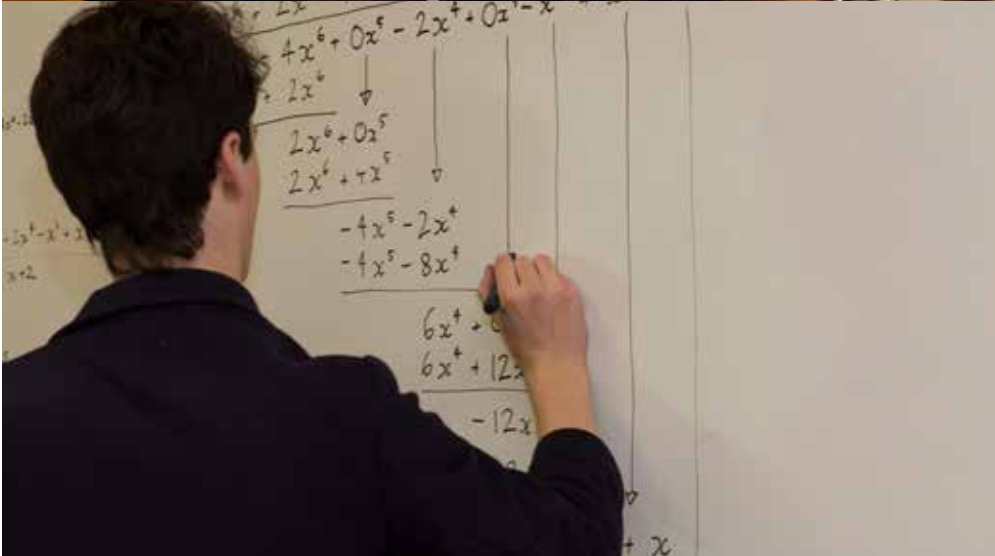 2x
4x⁶ + 0x⁵ - 2x⁴ + 0x³ - x
+ 2x⁶
2x⁶ + 0x⁵
2x⁶ + 4x⁵
-4x⁵ - 2x⁴
-4x⁵ - 8x⁴
-2x⁴ - x³ + x
x+2
6x⁴ +
6x⁴ + 12x
-12x
+ x